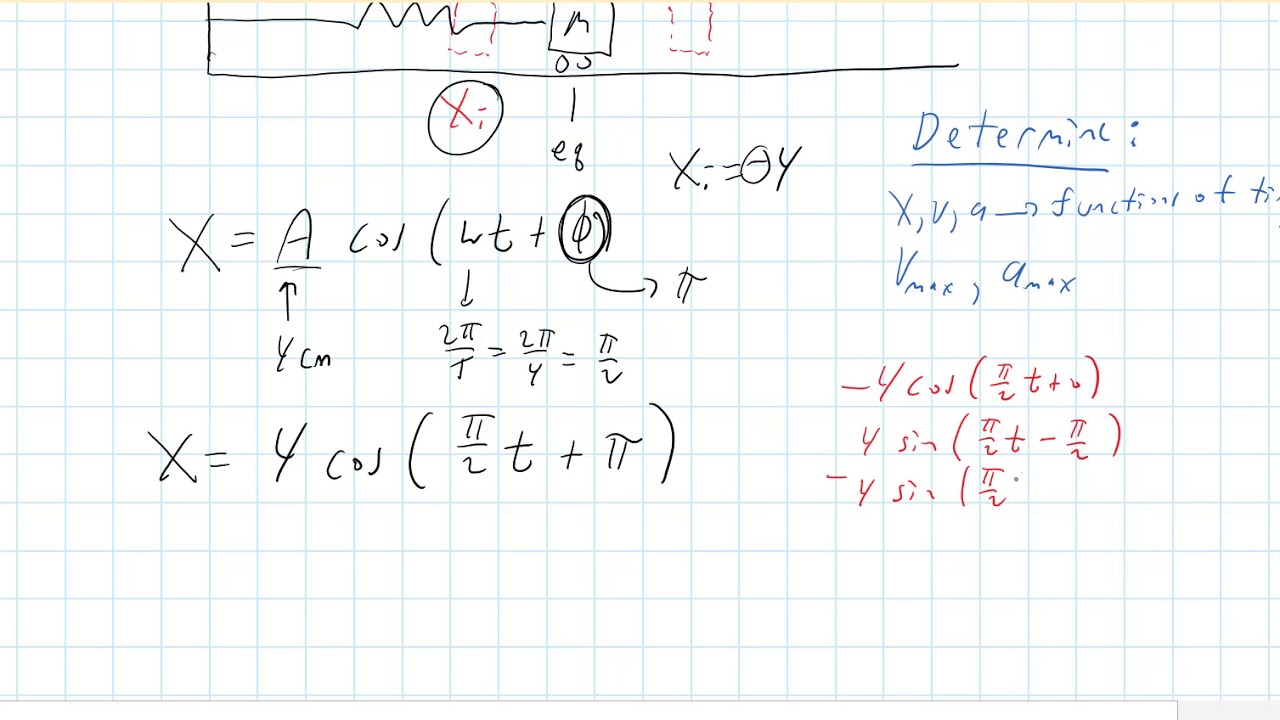 m
Xi
eq
Xi = -4
Determine:
X, v, a → functions of ti
Vmax, amax
X = A cos(wt + φ)
→ π
4 cm
2π/T = 2π/4 = π/2
X = 4 cos(π/2 t + π)
-4 cos(π/2 t + 0)
4 sin(π/2 t - π/2)
-4 sin(π/2